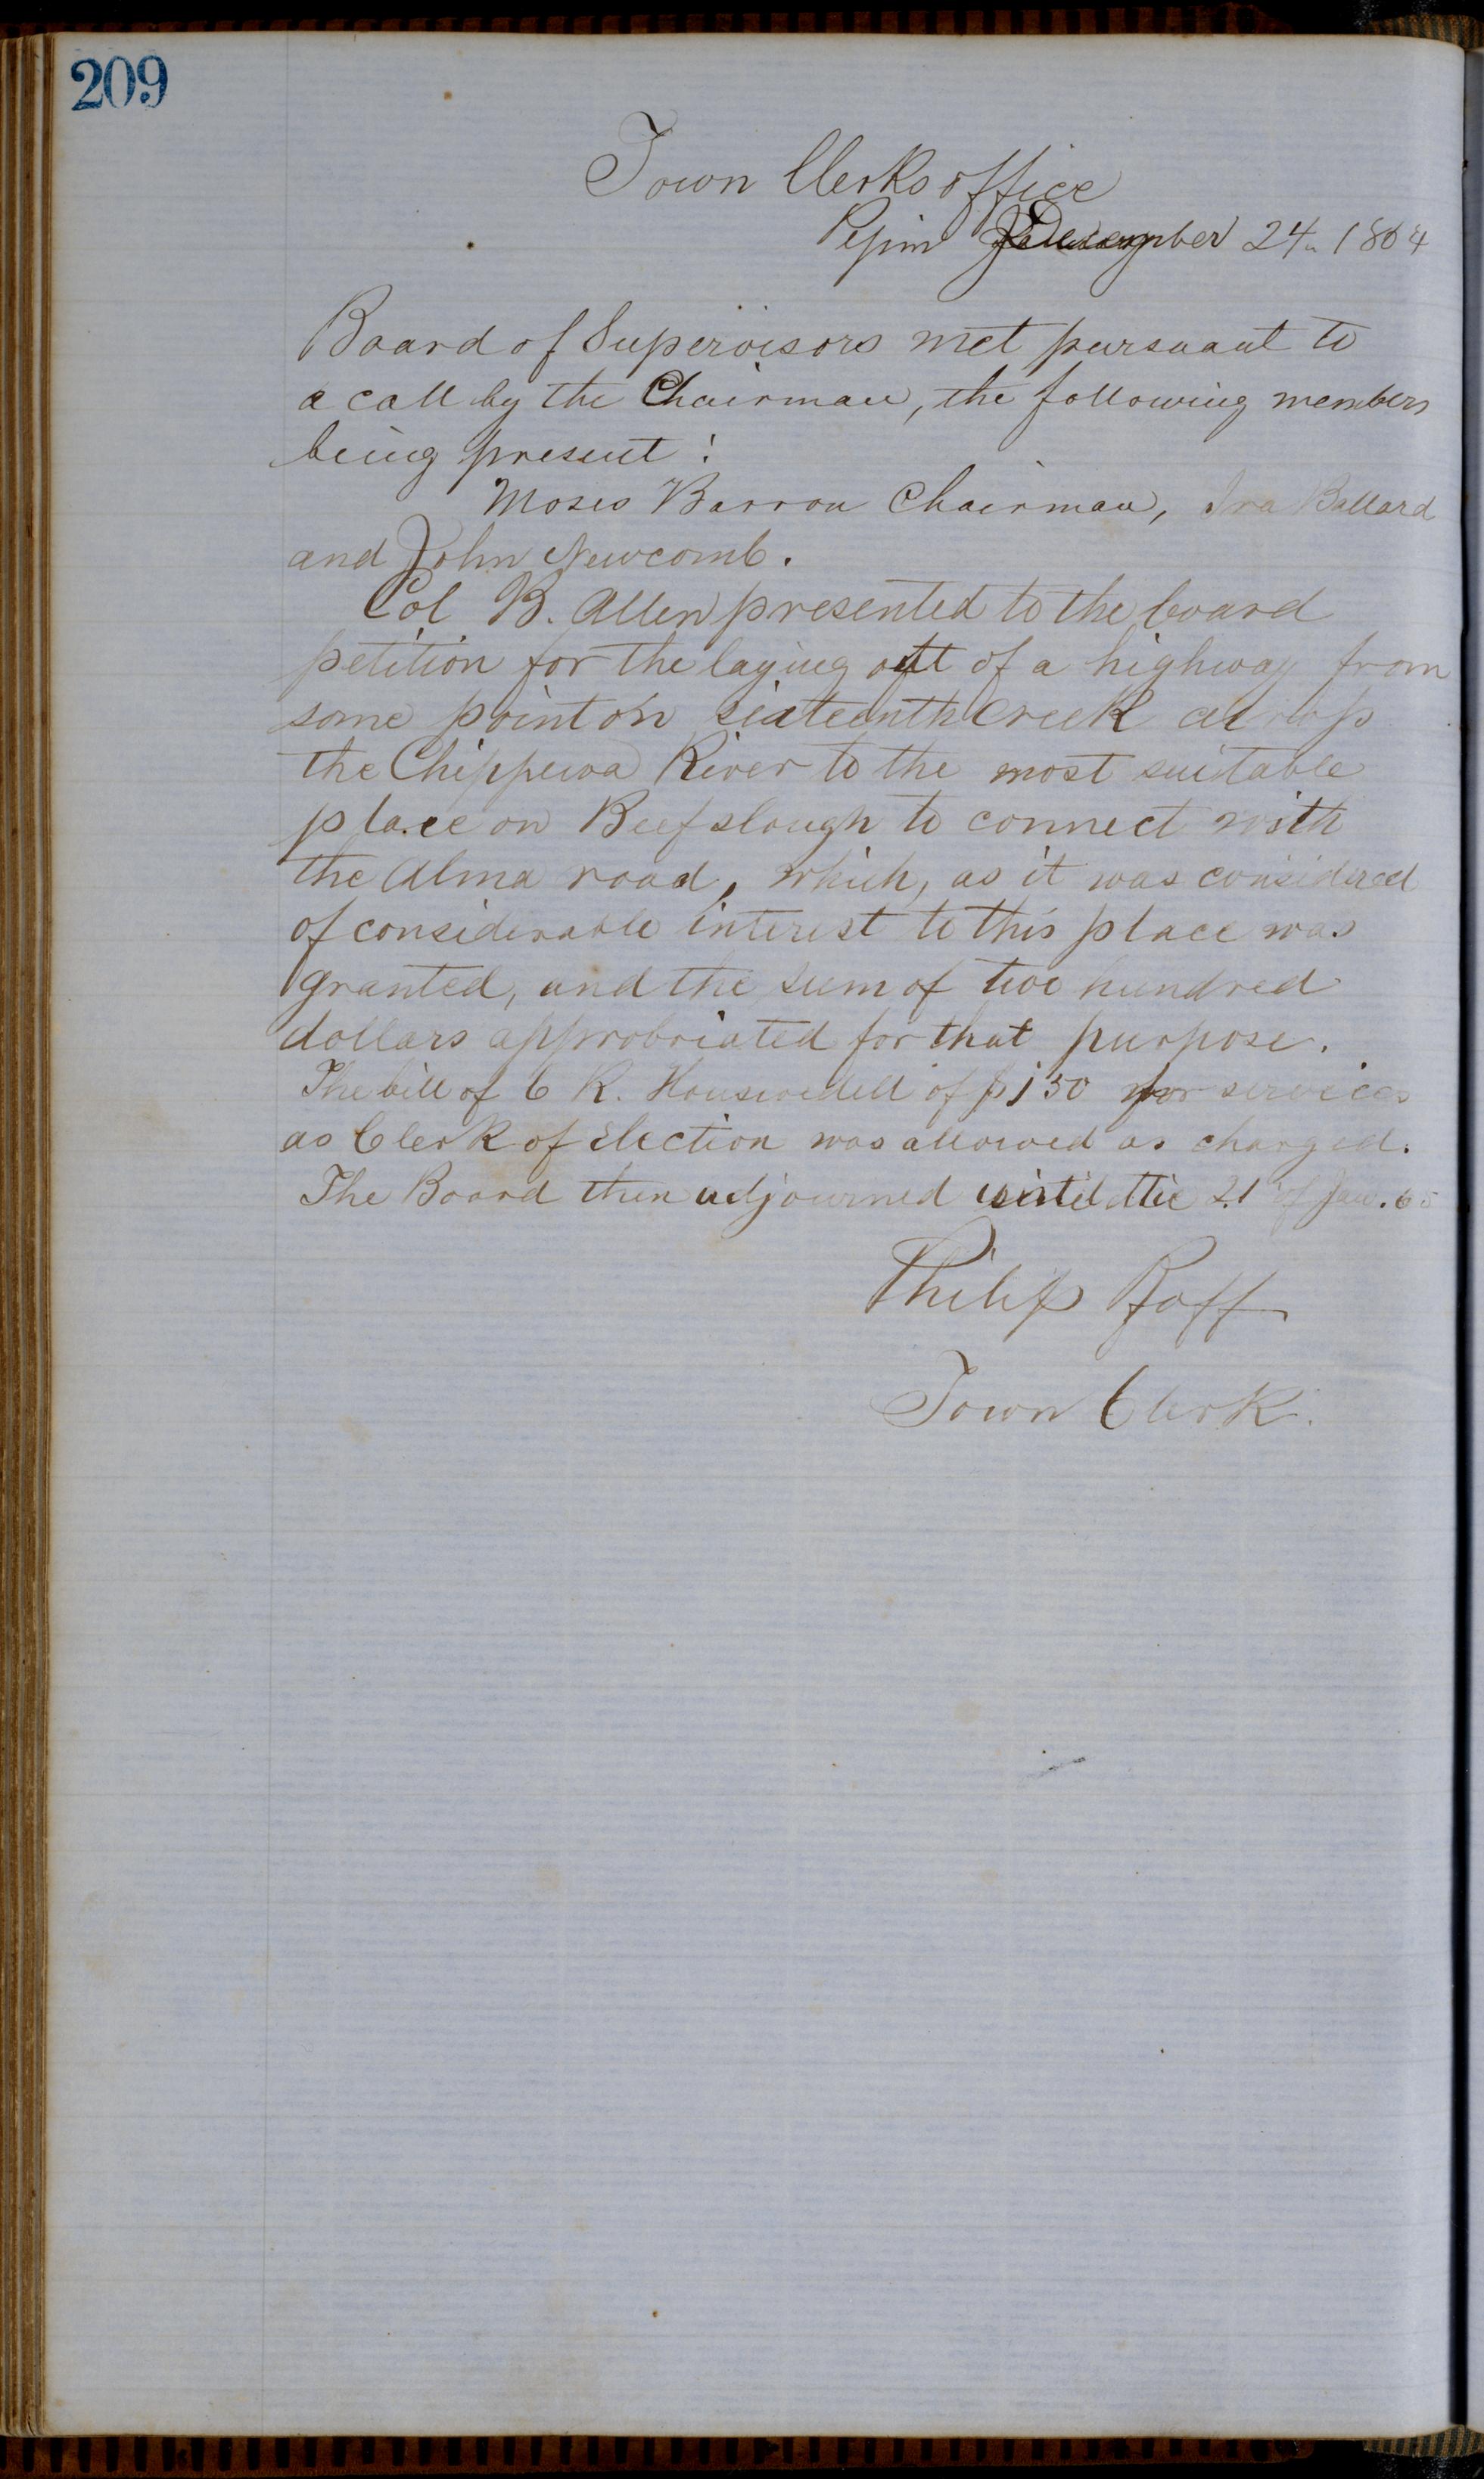 209
Town Clerks office
Pepin December 24. 1864
Board of Supervisors met pursuant to
a call by the Chairman, the following members
being present:
Moses Barron Chairman, Ira Ballard
and John Newcomb.
Col B. Allen presented to the board
petition for the laying out of a highway from
some point on sixteenth Creek across
the Chippewa River to the most suitable
place on Beefslough to connect with
the Alma road, which, as it was considered
of considerable interest to this place was
granted, and the sum of two hundred
dollars approbriated for that purpose.
The bill of C R. of $1 50 for services
as Clerk of Election was allowed as charged.
The Board then adjourned until the 21 of Jan. 65
Philip
Town Clerk.